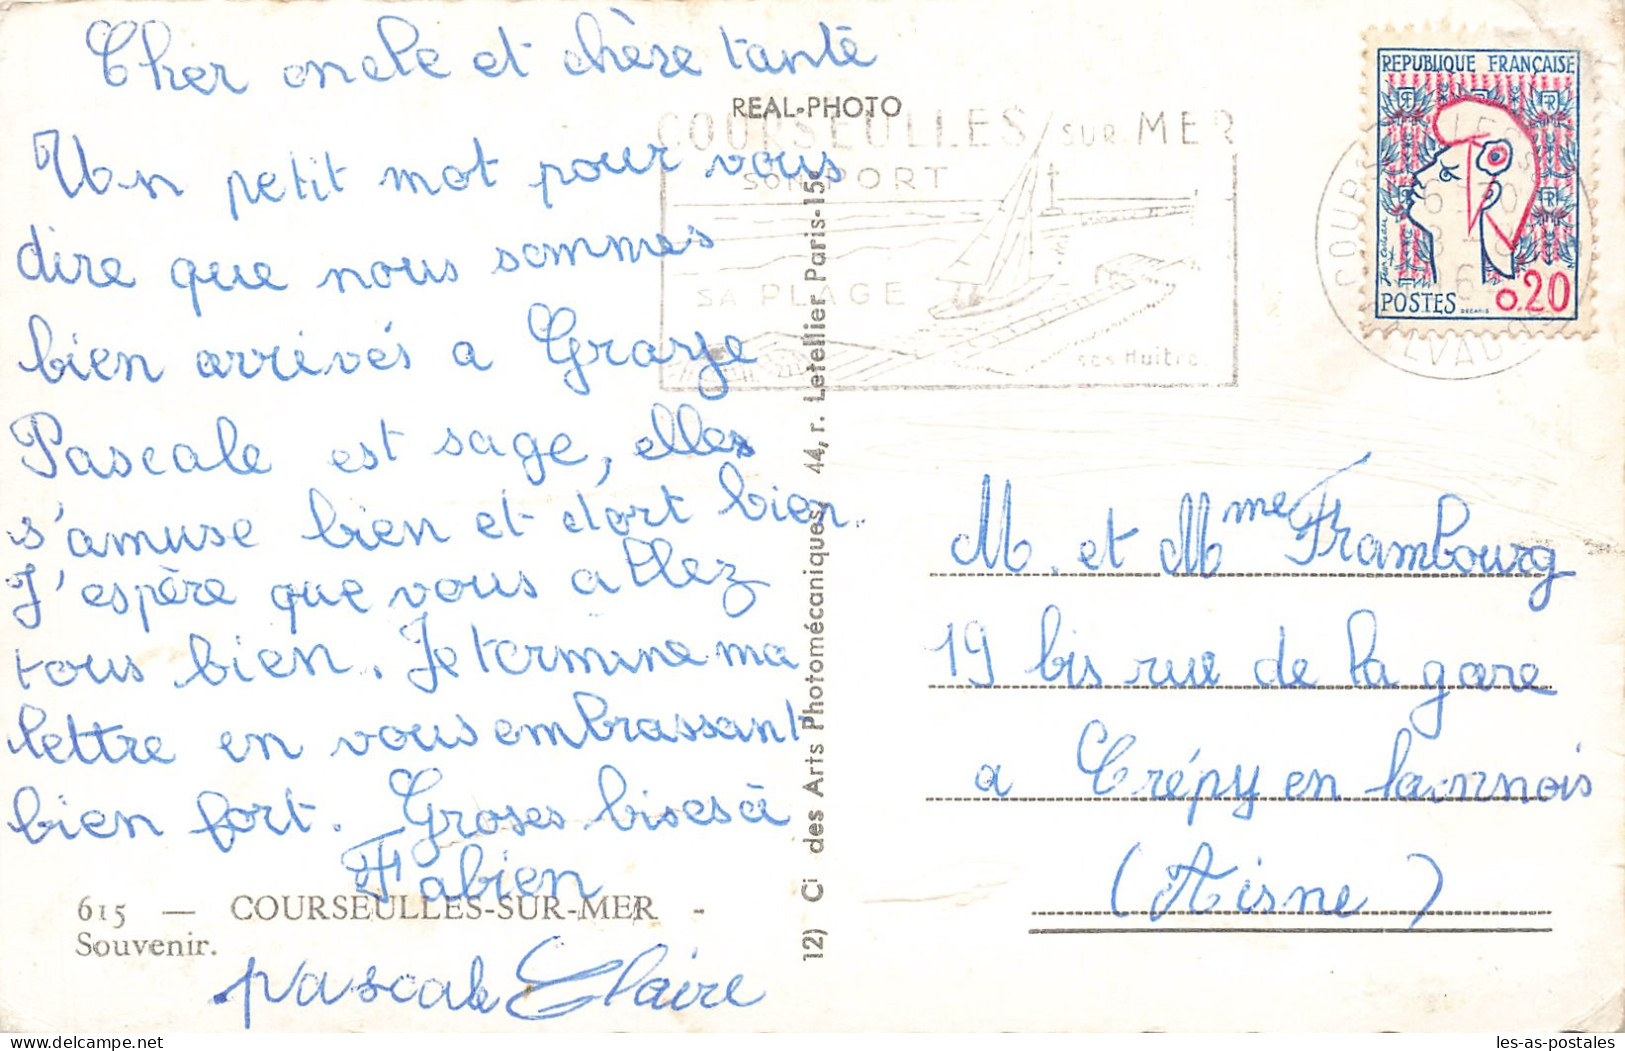 Cher oncle et chère tante
Un petit mot pour vous
dire que nous sommes
bien arrivés a Graye
Pascale est sage, elles
s'amuse bien et dort bien.
J'espère que vous allez
tous bien. Je termine ma
lettre en vous embrassant
bien fort. Groses bises à
Fabien
pascale Claire
615 — COURSEULLES-SUR-MER -
Souvenir.
REAL-PHOTO
COURSEULLES SUR MER
SON PORT
SA PLAGE
ses Huitres
12) Ci des Arts Photomécaniques, 44, r. Letellier Paris-15e
REPUBLIQUE FRANÇAISE
POSTES 0.20
M. et Mme Frambourg
19 bis rue de la gare
a Crépy en laonnois
(Aisne)
les-as-postales